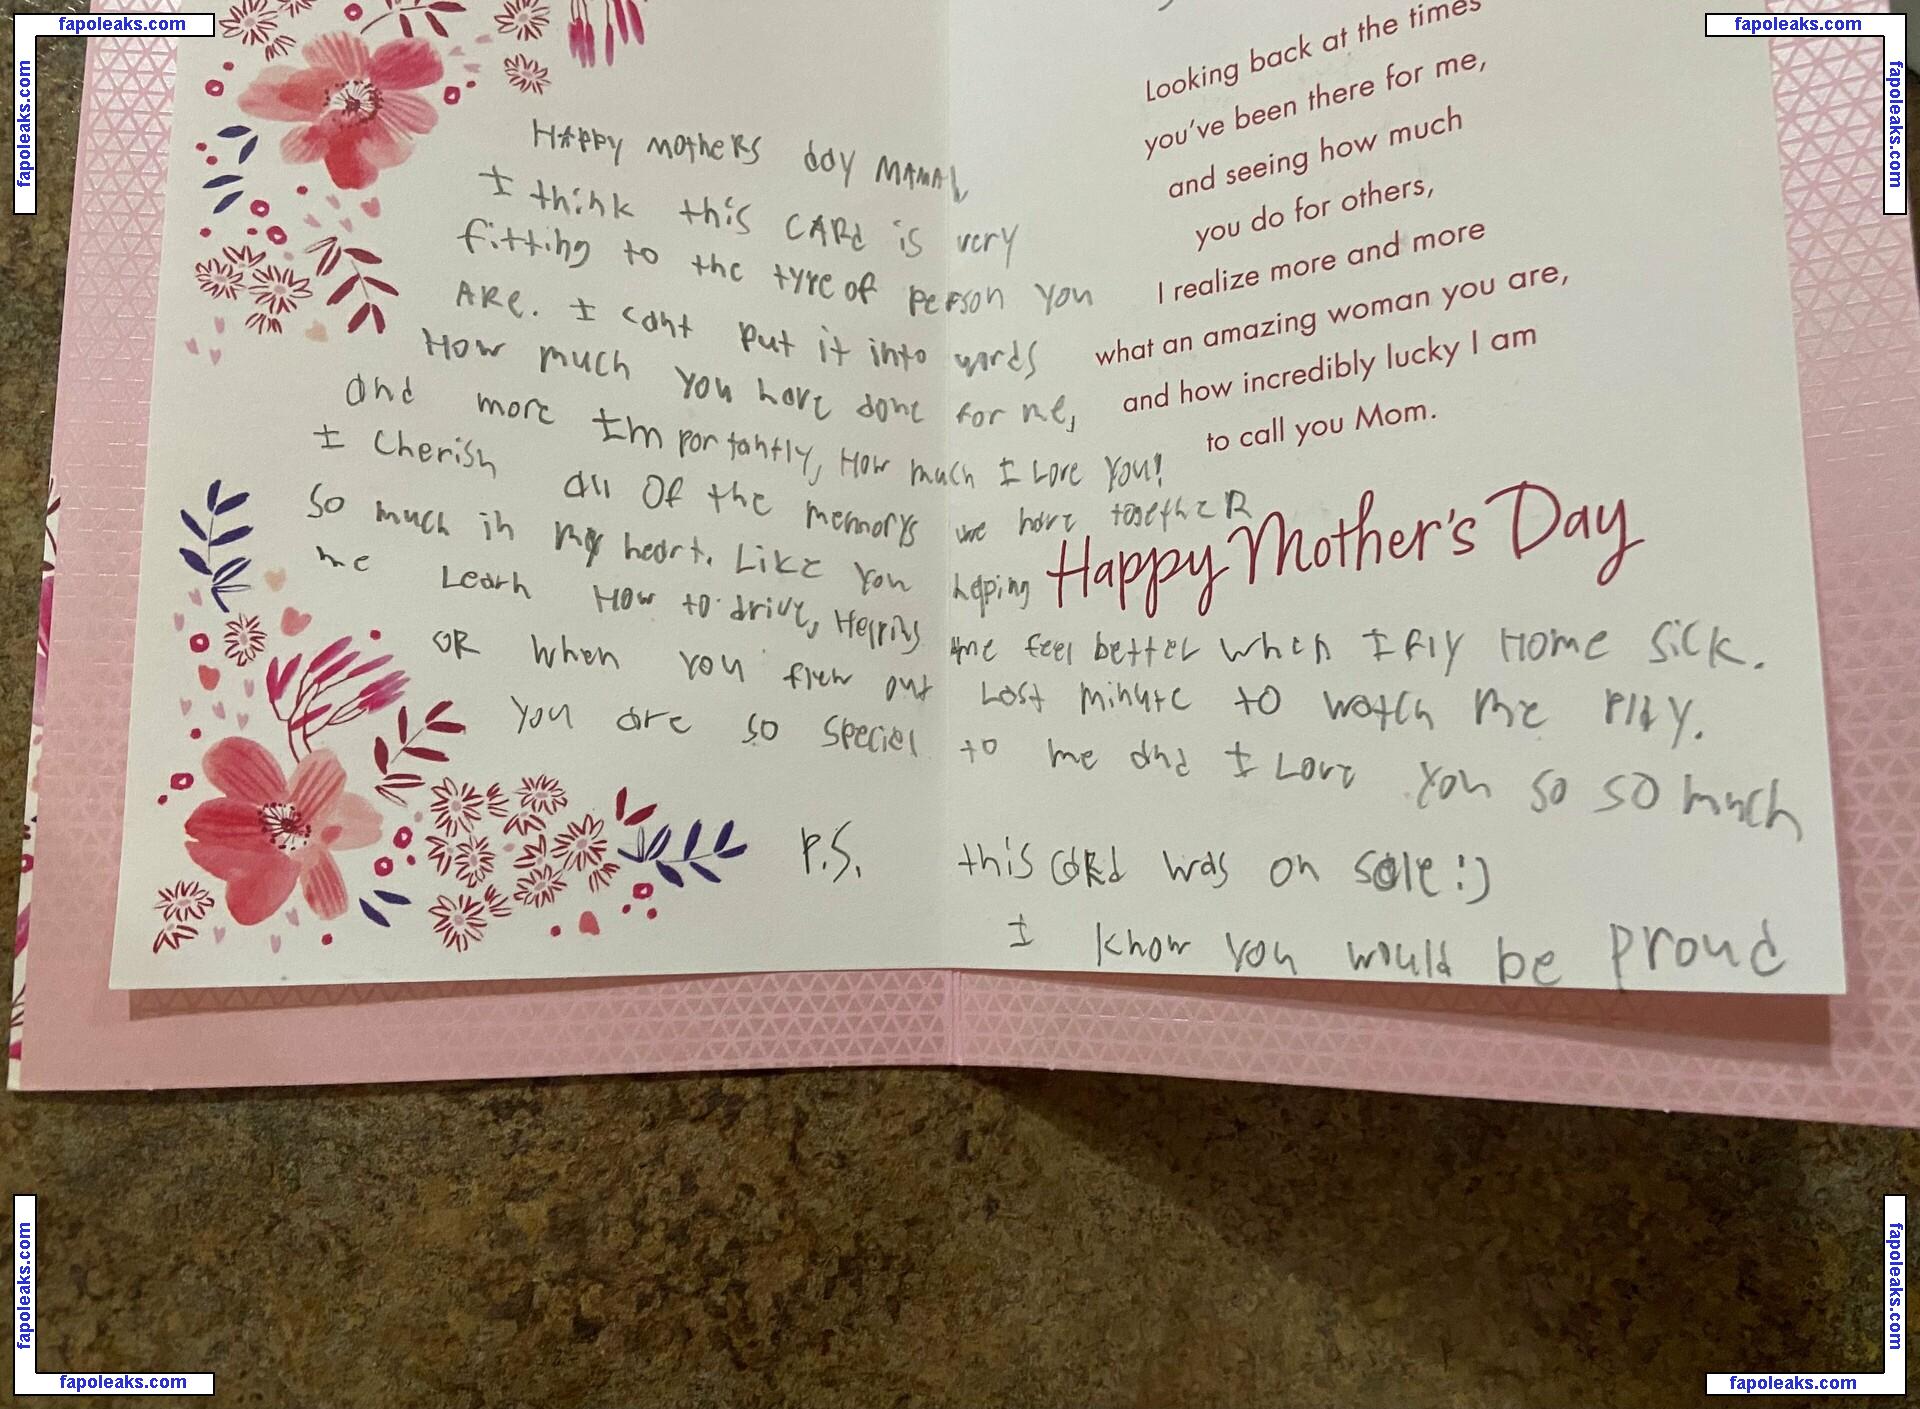 fapoleaks.com
fapoleaks.com
fapoleaks.com
fapoleaks.com
Looking back at the times
you've been there for me,
and seeing how much
you do for others,
I realize more and more
what an amazing woman you are,
and how incredibly lucky I am
to call you Mom.
Happy Mother's Day
Happy mothers day MAMA
I think this CARd is very
fitting to the type of person you
ARe. I cant put it into words
How much you have done for me,
and more Importantly, How much I Love you!
I Cherish all Of the memorys we have together
So much in my heart. Like you helping
me Learn How to drive, Helping me feel better when I fly Home Sick.
OR when you flew out Last minute to watch me play.
You are so special to me and I Love you so so much
P.S. this CaRd was on Sale :)
I know you would be proud
fapoleaks.com
fapoleaks.com
fapoleaks.com
fapoleaks.com